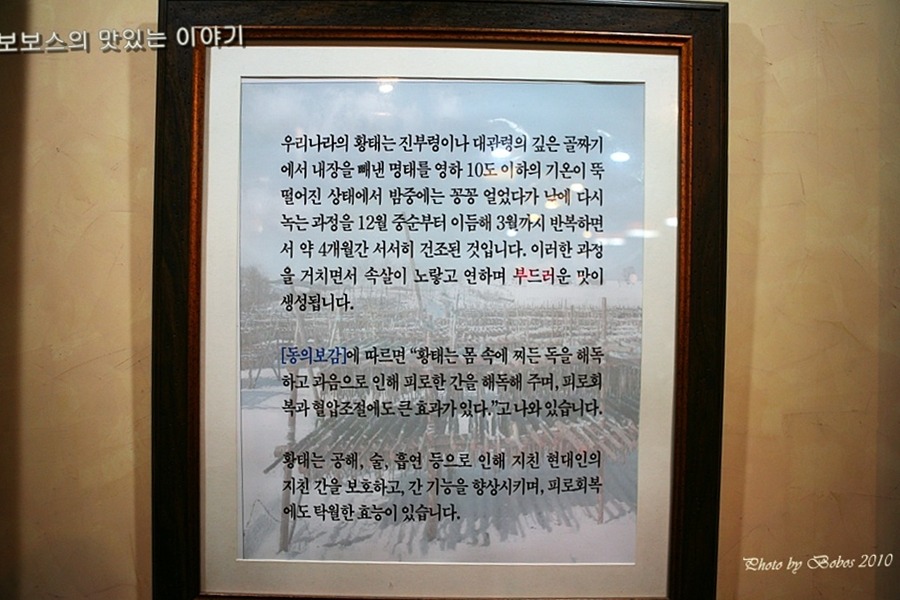 보보스의 맛있는 이야기
우리나라의 황태는 진부령이나 대관령의 깊은 골짜기
에서 내장을 빼낸 명태를 영하 10도 이하의 기온이 뚝
떨어진 상태에서 밤중에는 꽁꽁 얼었다가 낮에 다시
녹는 과정을 12월 중순부터 이듬해 3월까지 반복하면
서 약 4개월간 서서히 건조된 것입니다. 이러한 과정
을 거치면서 속살이 노랗고 연하며 부드러운 맛이
생성됩니다.
[동의보감]에 따르면 “황태는 몸 속에 찌든 독을 해독
하고 과음으로 인해 피로한 간을 해독해 주며, 피로회
복과 혈압조절에도 큰 효과가 있다.”고 나와 있습니다.
황태는 공해, 술, 흡연 등으로 인해 지친 현대인의
지친 간을 보호하고, 간 기능을 향상시키며, 피로회복
에도 탁월한 효능이 있습니다.
Photo by Bobos 2010